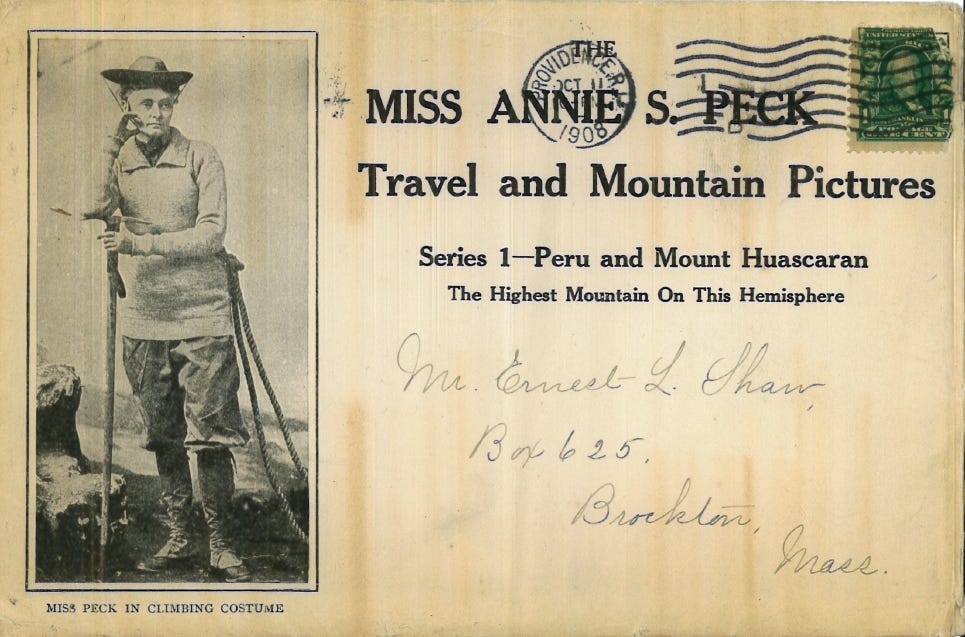 THE
MISS ANNIE S. PECK
Travel and Mountain Pictures
Series 1—Peru and Mount Huascaran
The Highest Mountain On This Hemisphere
PROVIDENCE, R.I.
OCT 11
1908
UNITED STATES
FRANKLIN
POSTAGE
ONE CENT
Mr. Ernest L. Shaw,
Box 625,
Brockton,
Mass.
MISS PECK IN CLIMBING COSTUME